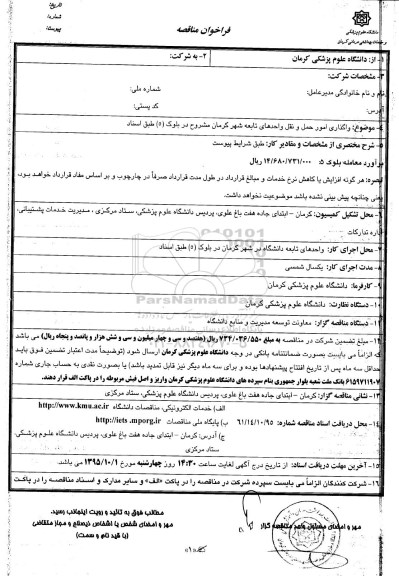 تاریخ:
شماره:
پیوست:
فراخوان مناقصه
دانشگاه علوم پزشکی
و خدمات بهداشتی درمانی کرمان
۱- از: دانشگاه علوم پزشکی کرمان
۲- به شرکت:
۳- مشخصات شرکت:
نام و نام خانوادگی مدیرعامل:
شماره ملی:
آدرس:
کد پستی:
۴- موضوع: واگذاری امور حمل و نقل واحدهای تابعه شهر کرمان مشروح در بلوک (۵) طبق اسناد
۵- شرح مختصری از مشخصات و مقادیر کار: طبق شرایط پیوست
برآورد معامله بلوک ۵: ۱۴/۶۸۰/۷۳۱/۰۰۰ ریال
تبصره: هر گونه افزایش یا کاهش نرخ خدمات و مبالغ قرارداد در طول مدت قرارداد صرفاً در چارچوب و بر اساس مفاد قرارداد خواهد بود،
یعنی چنانچه پیش بینی نشده باشد موضوعیت نخواهد داشت.
۶- محل تشکیل کمیسیون: کرمان – ابتدای جاده هفت باغ علوی، پردیس دانشگاه علوم پزشکی، ستاد مرکزی، مدیریت خدمات پشتیبانی،
اداره تدارکات
۷- محل اجرای کار: واحدهای تابعه دانشگاه در شهر کرمان در بلوک (۵) طبق اسناد
۸- مدت اجرای کار: یکسال شمسی
۹- کارفرما: دانشگاه علوم پزشکی کرمان
۱۰- دستگاه نظارت: دانشگاه علوم پزشکی کرمان
ParsNamadData
۱۱- دستگاه مناقصه گزار: معاونت توسعه مدیریت و منابع دانشگاه
۱۲- مبلغ تضمین شرکت در مناقصه به مبلغ ۷۳۴/۰۳۶/۵۵۰ ریال (هفتصد و سی و چهار میلیون و سی و شش هزار و پانصد و پنجاه ریال) می باشد
که الزاماً می بایست بصورت ضمانتنامه بانکی در وجه دانشگاه علوم پزشکی کرمان ارسال شود (توضیحاً مدت اعتبار تضمین فوق باید
حداقل سه ماه پس از تاریخ افتتاح پیشنهادها بوده و برای سه ماه دیگر نیز قابل تمدید باشد) یا بصورت نقدی به حساب جاری شماره
۶۱۵۹۷۱۱۹۰۷ بانک ملت شعبه بلوار جمهوری بنام سپرده های دانشگاه علوم پزشکی کرمان واریز و اصل فیش مربوطه را در پاکت الف قرار دهند.
۱۳- نشانی مناقصه گزار: کرمان – ابتدای جاده هفت باغ علوی، پردیس دانشگاه علوم پزشکی، ستاد مرکزی
۱۴- محل دریافت اسناد مناقصه شماره: ۶۱/۱۴/۱۰/۹۵
الف) خدمات الکترونیکی، مناقصات دانشگاه http://www.kmu.ac.ir
ب) پایگاه ملی مناقصات http://iets.mporg.ir
ج) آدرس: کرمان – ابتدای جاده هفت باغ علوی، پردیس دانشگاه علوم پزشکی،
ستاد مرکزی
۱۵- آخرین مهلت دریافت اسناد: از تاریخ درج آگهی لغایت ساعت ۱۴:۳۰ روز چهارشنبه مورخ ۱۳۹۵/۱۰/۱ می باشد.
۱۶- شرکت کنندگان الزاماً می بایست سپرده شرکت در مناقصه را در پاکت «الف» و سایر مدارک و اسناد مناقصه را در پاکت
مطالب فوق به تائید و رویت اینجانب رسید.
مهر و امضای شخص یا اشخاص ذیصلاح و مجاز متقاضی
(با قید نام و سمت)
مهر و امضای مسئول واحد مناقصه گزار